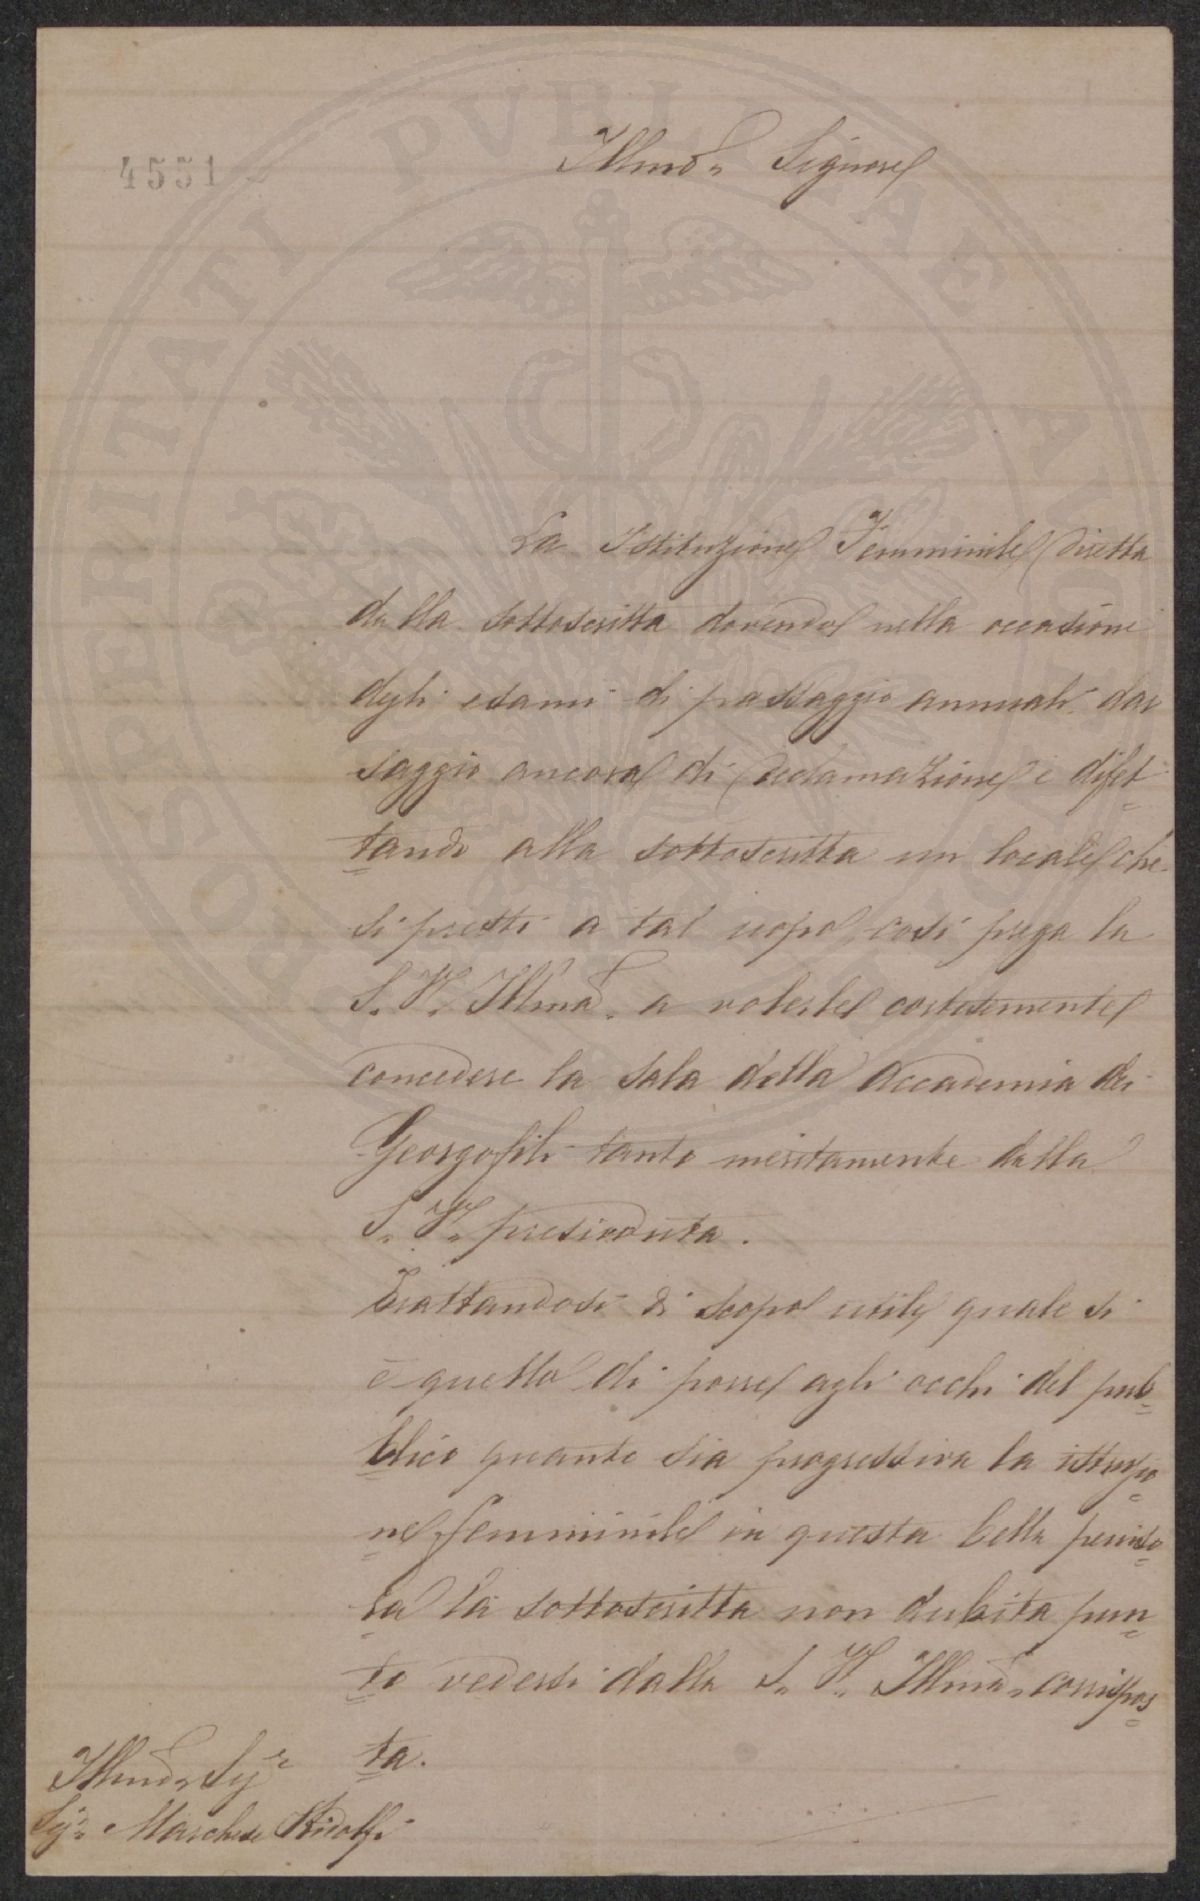 4551
Illmo. Signore
La Istituzione Femminile diretta
dalla sottoscritta dovendo nella occasione
degli esami di passaggio annuali dar
saggio ancora di declamazione e difet-
tando alla sottoscritta un locale che
si presti a tal uopo, così prega la
S. V. Illma. a volerle cortesemente
concedere la sala della Accademia dei
Georgofili tanto meritamente dalla
S. V. presieduta.
Trattandosi di scopo utile quale si
è quello di porre agli occhi del pub-
blico quanto sia progressiva la istruzio-
ne femminile in questa bella peniso-
la la sottoscritta non dubita pun-
to vedersi dalla S. V. Illma. corrispos-
ta.
Illmo. Sigr
Sigr. Marchese Ridolfi
PROSPERITATI PVBLICAE AVGENDAE